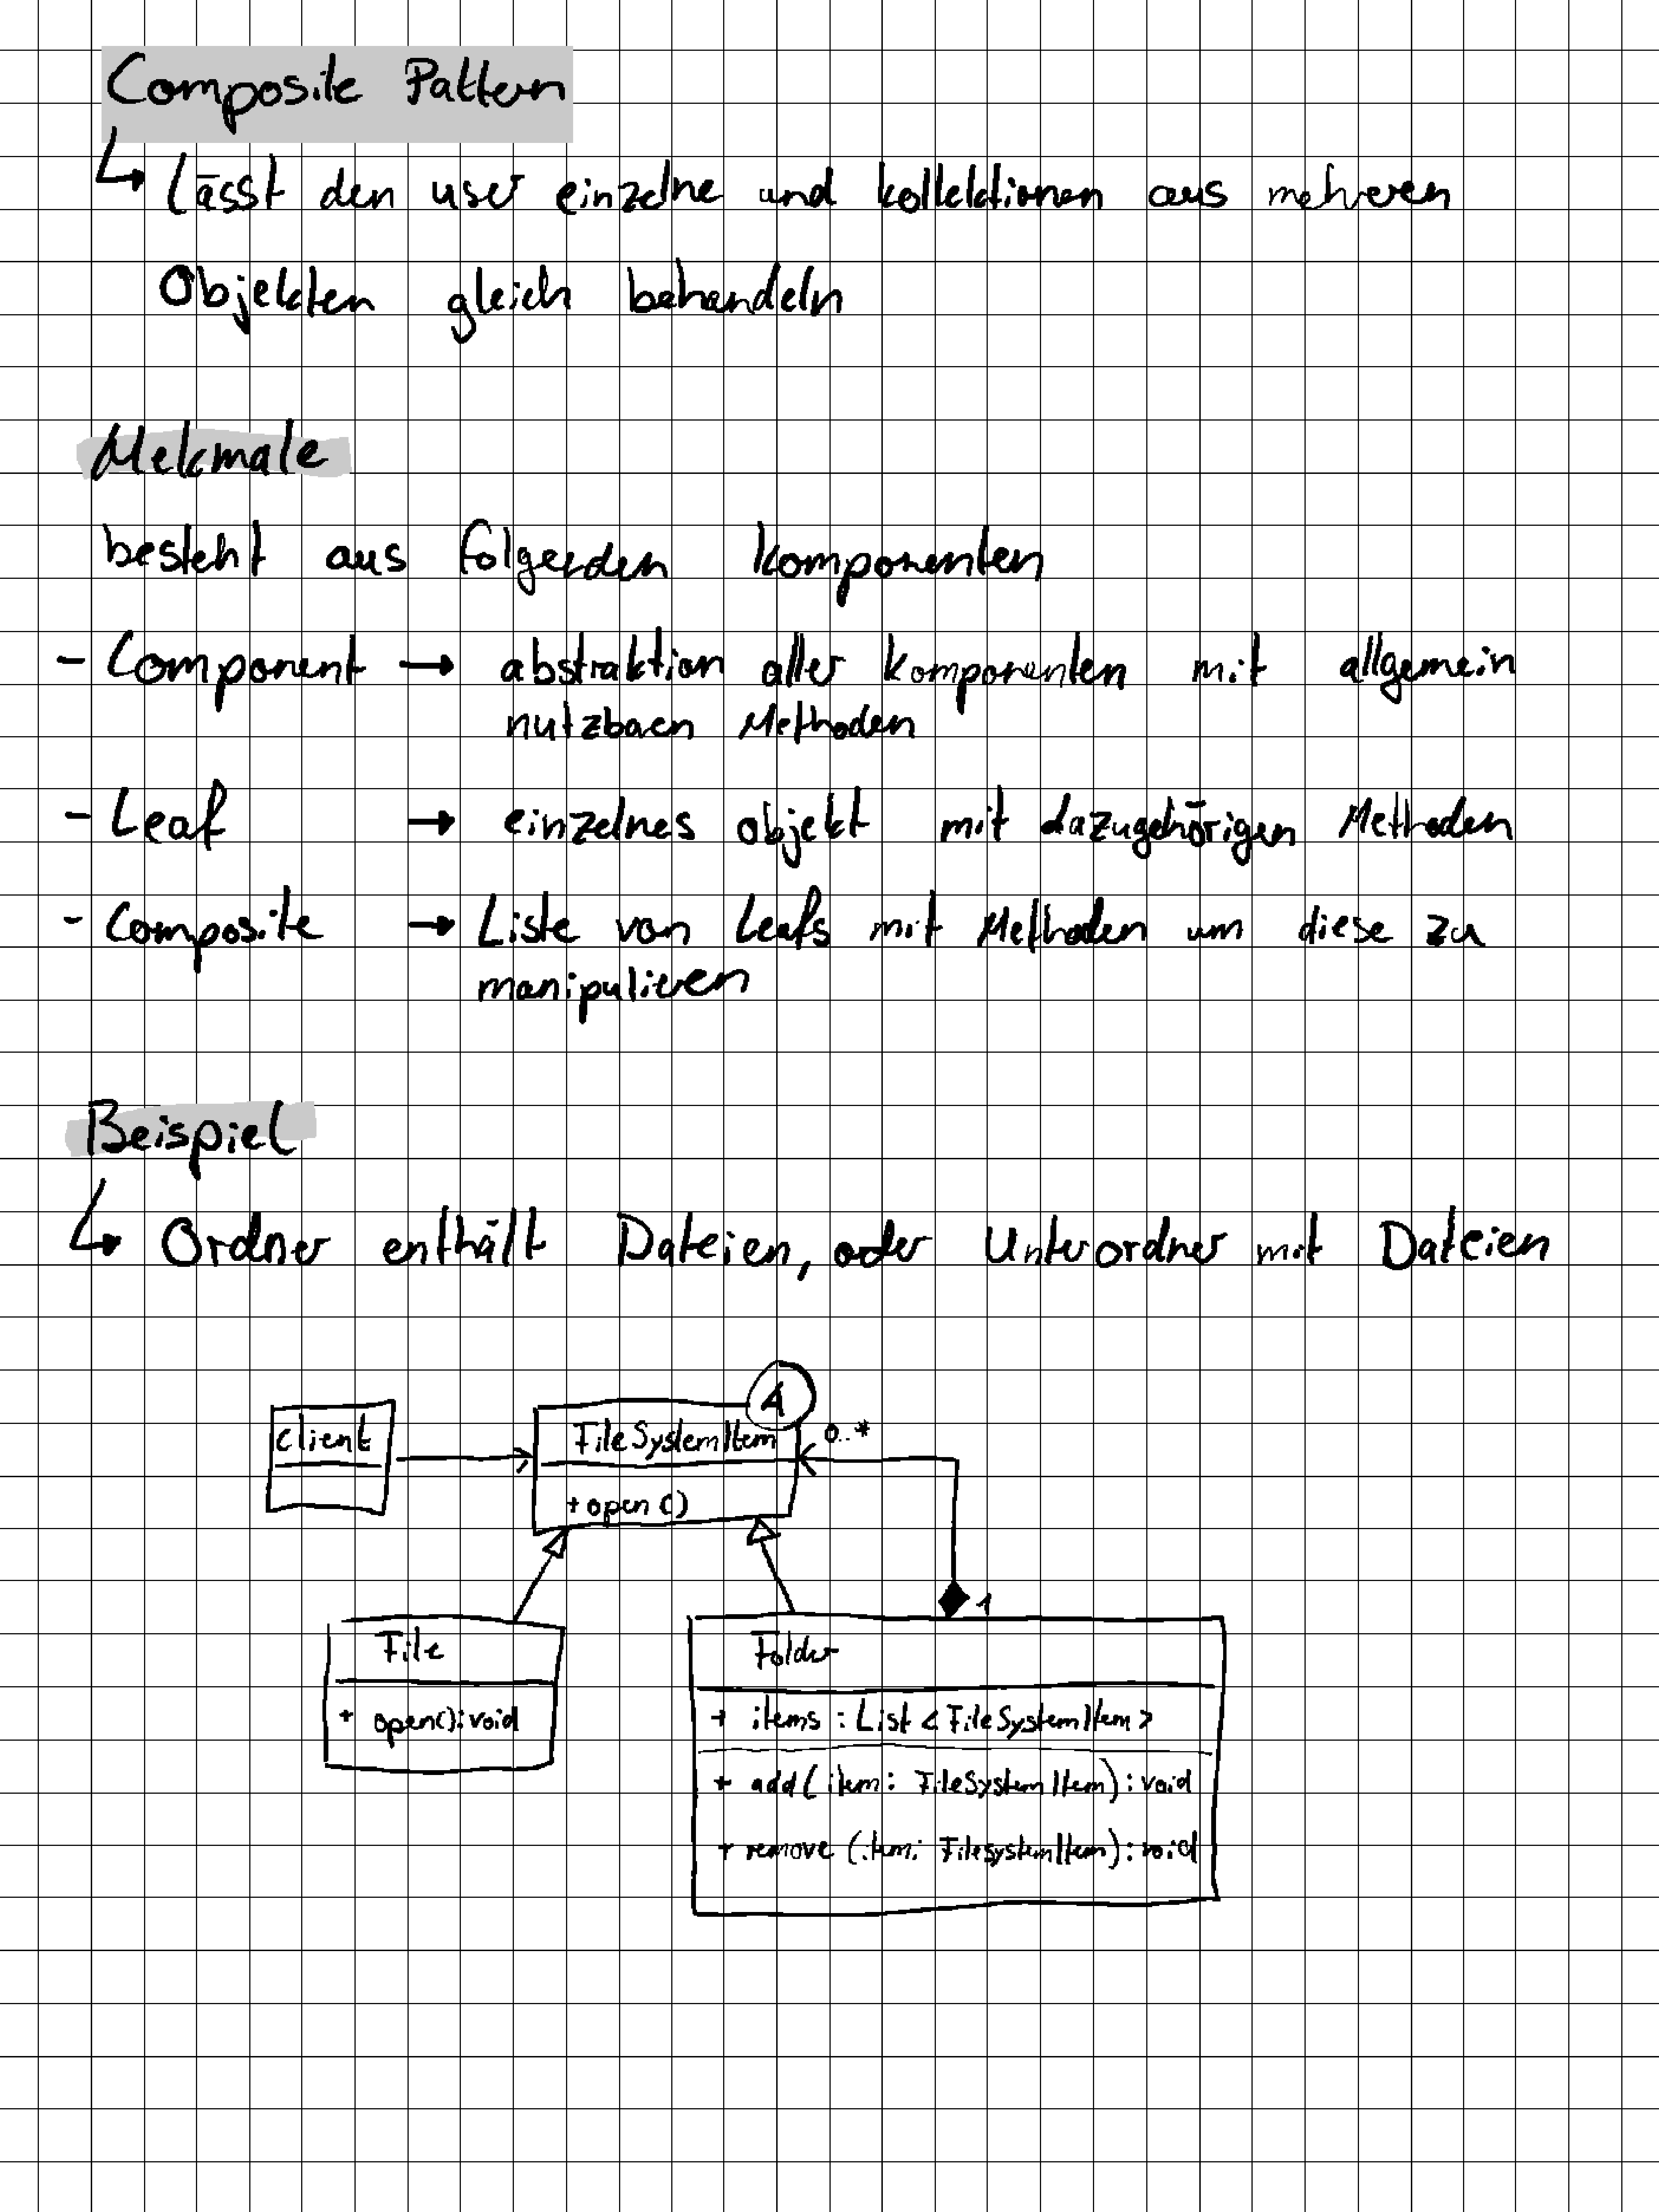 Composite Pattern
lässt den user einzelne und kollektionen aus mehreren
Objekten gleich behandeln
Mekmale
besteht aus folgenden komponenten
- Component → abstraktion aller komponenten mit allgemein
nutzbaen Methoden
- Leaf → einzelnes objekt mit dazugehörigen Methoden
- Composite → Liste von Leafs mit Methoden um diese zu
manipulieren
Beispiel
Ordner enthält Dateien, oder Unterordner mit Dateien
A
client
FileSystemItem
0..*
+ open()
1
File
Folder
+ open(): void
+ items : List <FileSystemItem>
+ add(item: FileSystemItem): void
+ remove (item: FilesystemItem): void